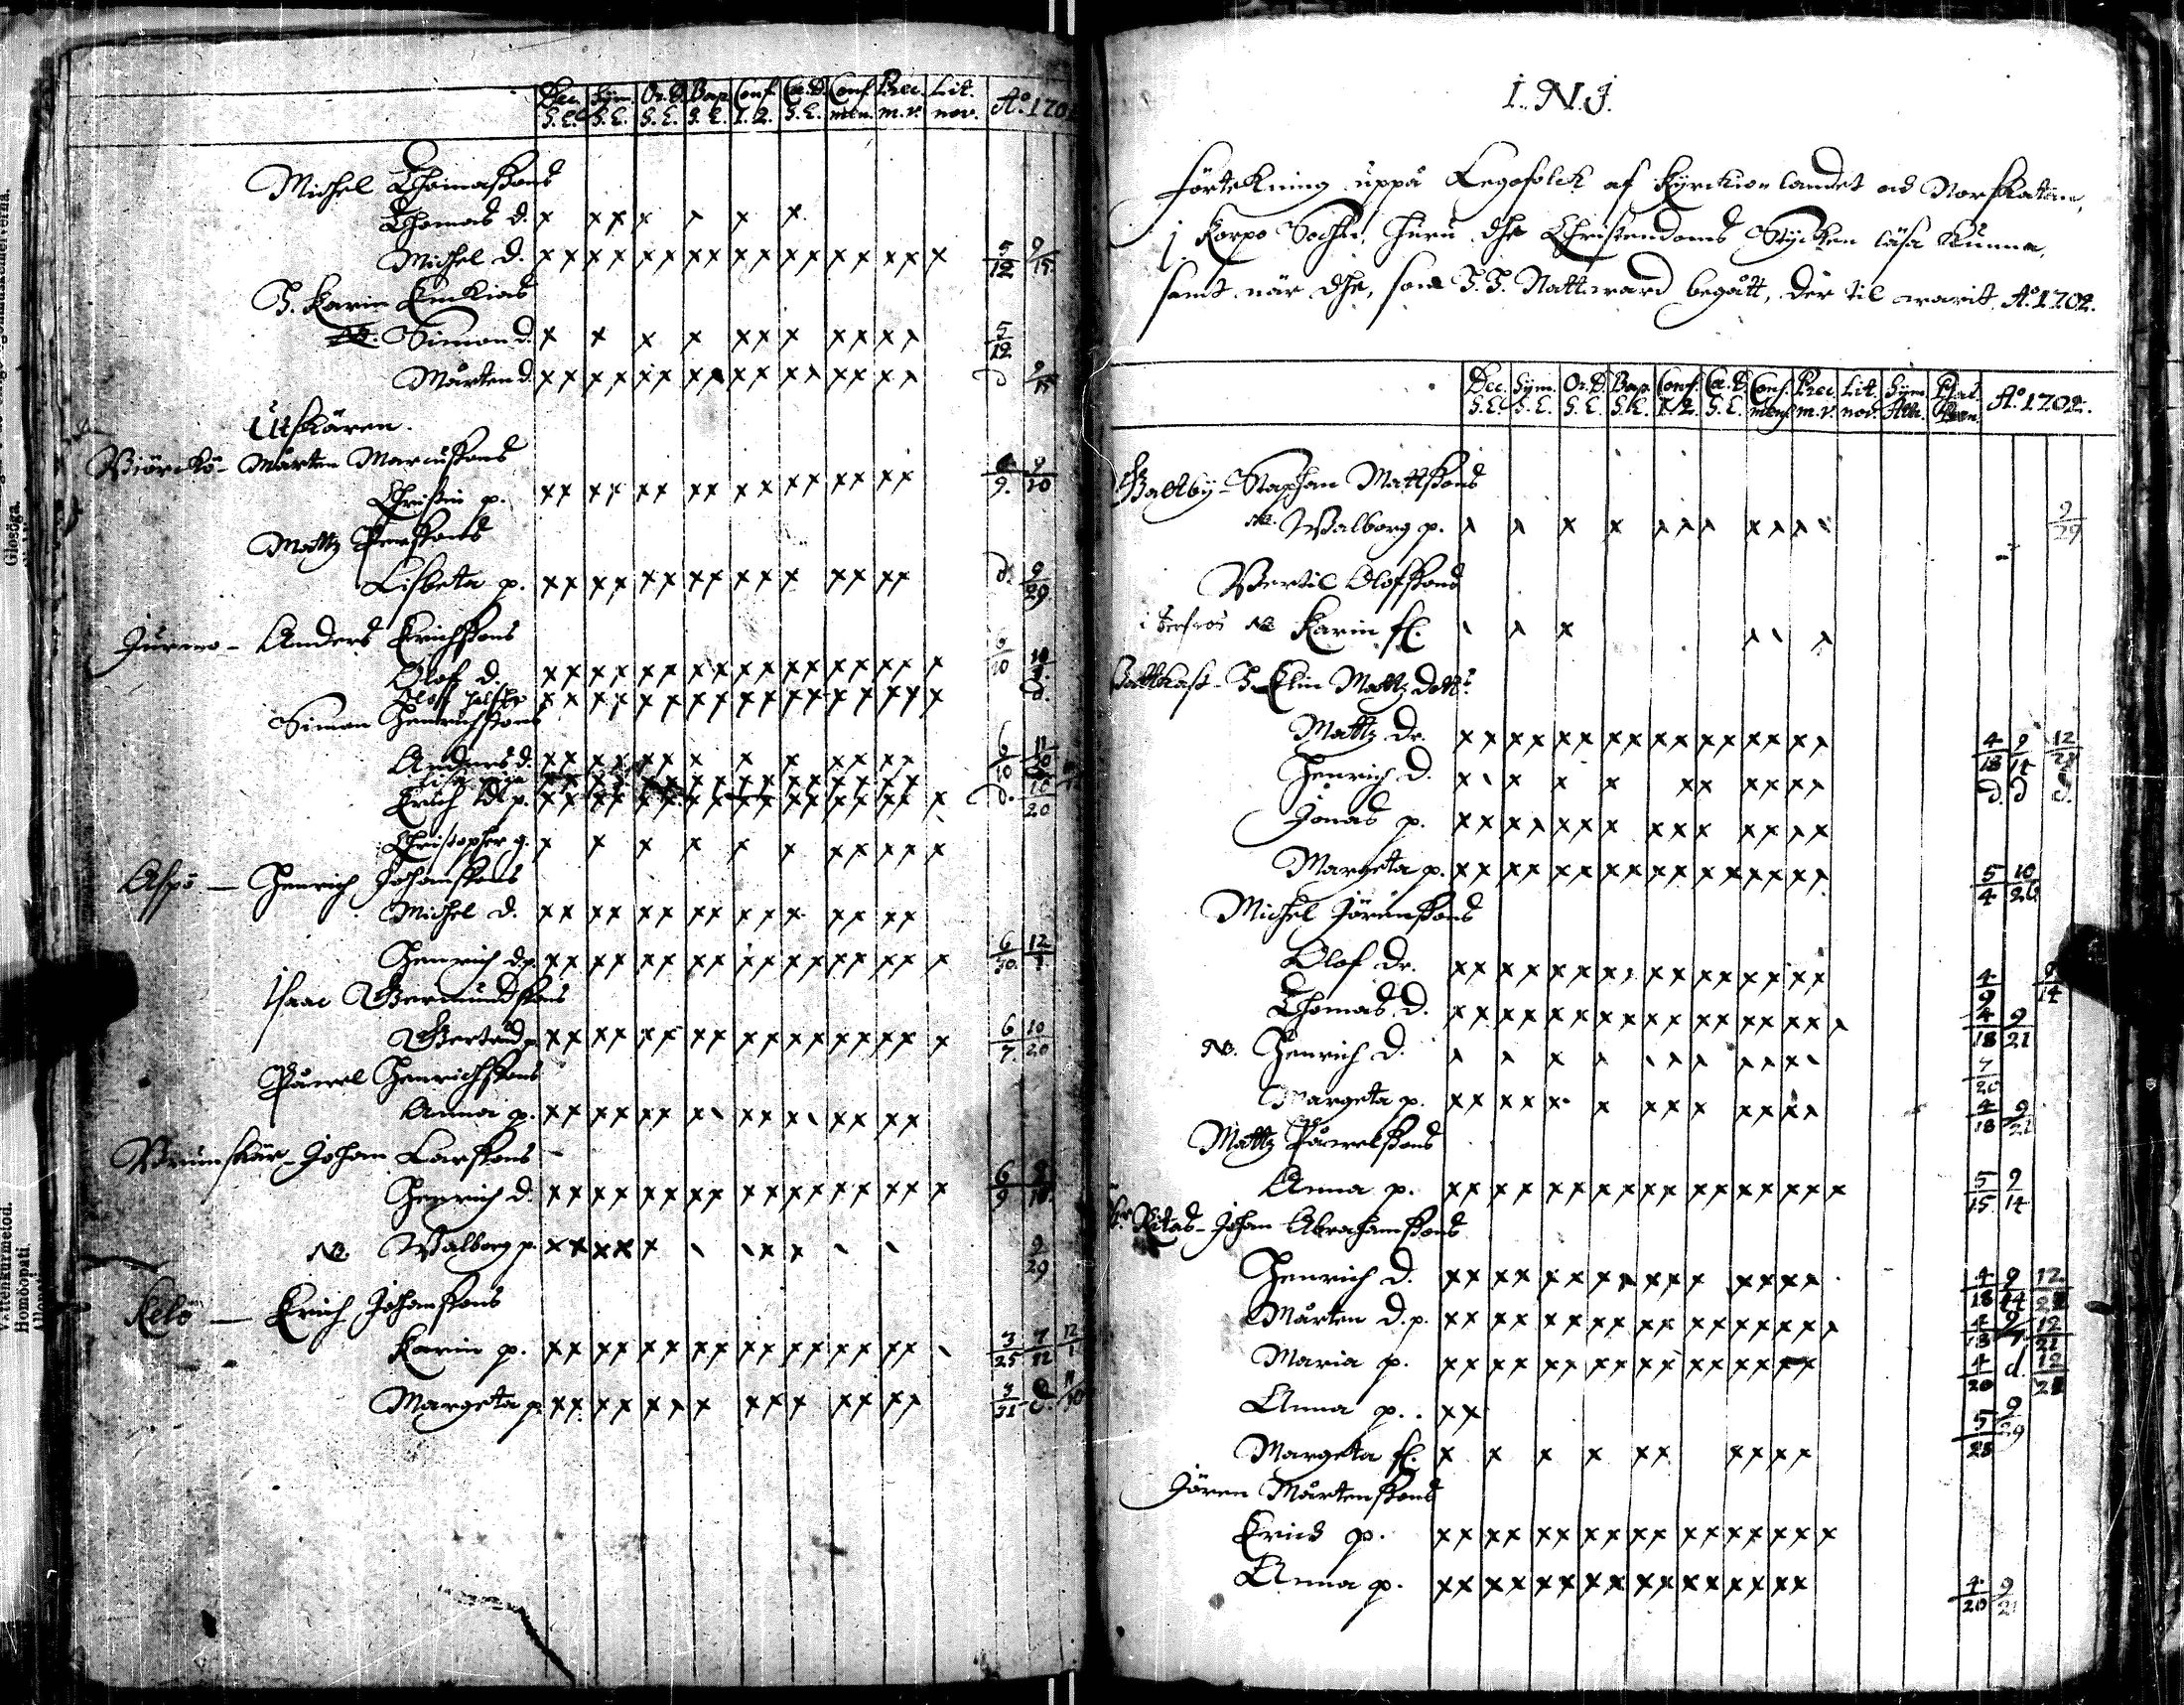 Dec. Sym. Or.D. Bap. Conf. Cœ.D. Conf. Prec. Lit. Aº. 1701
S.E. S.E. S.E. S.E. 1. 2. S.E. mens. m.v. nov.
Michel Thomassons
Thomas d. x xx x x x x
Michel d. xx xx xx xx xx xx xx xx x 5/12 9/15
H. Karin
Simon d. x x x x xx x xx xx 5/12
Mårten d. xx xx xx xx xx xx xx xx d 9/15
Utskären.
Biörckö - Mårten Marcussons
Christin p. xx xx xx xx xx xx xx xx 9/10
Mattz Perssons
Lisbeta p. xx xx xx xx xx x xx xx d. 9/29
Jurmo - Anders Erichssons
Olof d. xx xx xx xx xx xx xx xx x
Simon Henrichssons
Anders d. xx xx xx x x x xx xx
Erich p. xx xx xx xx xx xx xx xx x d. 10/20
Christopher g. x x x x x x xx xx x
Aspö - Henrich Johanssons
Michel d. xx xx xx xx xx x xx xx
Henrich d.p. xx xx xx xx xx xx xx xx x 6/30 12/1
Isaac Germundssons
Gertrud p. xx xx xx xx xx xx xx xx x 6/7 10/20
Påwel Henrichssons
Anna p. xx xx xx x xx x xx xx
Brunskär - Johan Larssons
Henrich d. xx xx xx xx xx xx xx xx x 6/9
NB. Walborg p. xx xx x x x 9/29
Kelö - Erich Johanssons
Karin p. xx xx xx xx xx xx xx xx 3/25 7/12
Margeta p. xx xx xx x xx x xx xx 3/31 d.
I. N. J.
Förtekning uppå Legofolck af Kyrckiolandet och Norskatan,
i Korpo Sochn, huru dhe Christendoms Stycken läsa kunna,
samt när dhe, som H. H. Nattward begått, der til warit Aº. 1702.
Dec. Sym. Or.D. Bap. Conf. Cœ.D. Conf. Prec. Lit. Sym. Psal. Aº. 1702.
S.E. S.E. S.E. S.E. 1. 2. S.E. mens. m.v. nov. Ath. Pœn.
Galtby - Staphan Mattssons
NB. Walborg p. 9/29
Bertil Olofssons
NB Karin fl.
H. Elin Mattz dott.
Mattz dr. xx xx xx xx xx xx xx xx 4/18 9/14 12/28
Henrich d. x x x x xx xx xx d. d d.
Jonas p. xx xx xx x xx x xx xx
Margeta p. xx xx xx xx xx xx xx xx 5/4 10/26
Michel Jörenssons
Olof dr. xx xx xx x xx xx xx xx 4/9 9/14
Thomas d. xx xx xx xx xx xx xx xx x 4/18 9/21
NB. Henrich d. 7/20
Margeta p. xx xx x x xx x xx xx 4/18 9/21
Mattz Påwelssons
Anna p. xx xx xx xx xx xx xx xx x 5/15 9/14
Ritas - Johan Abrahamssons
Henrich d. xx xx xx xx xx x xx xx 4/18 9/14 12/28
Mårten d.p. xx xx xx xx xx xx xx xx x
Maria p. xx xx xx xx xx xx xx xx 4/20 d. 12/28
Anna p. xx 5/28 9/29
Margeta fl. x x x x xx xx xx
Jören Mårtenssons
Erich p. xx xx xx xx xx xx xx xx x
Anna p. xx xx xx xx xx xx xx xx 4/20 9/21